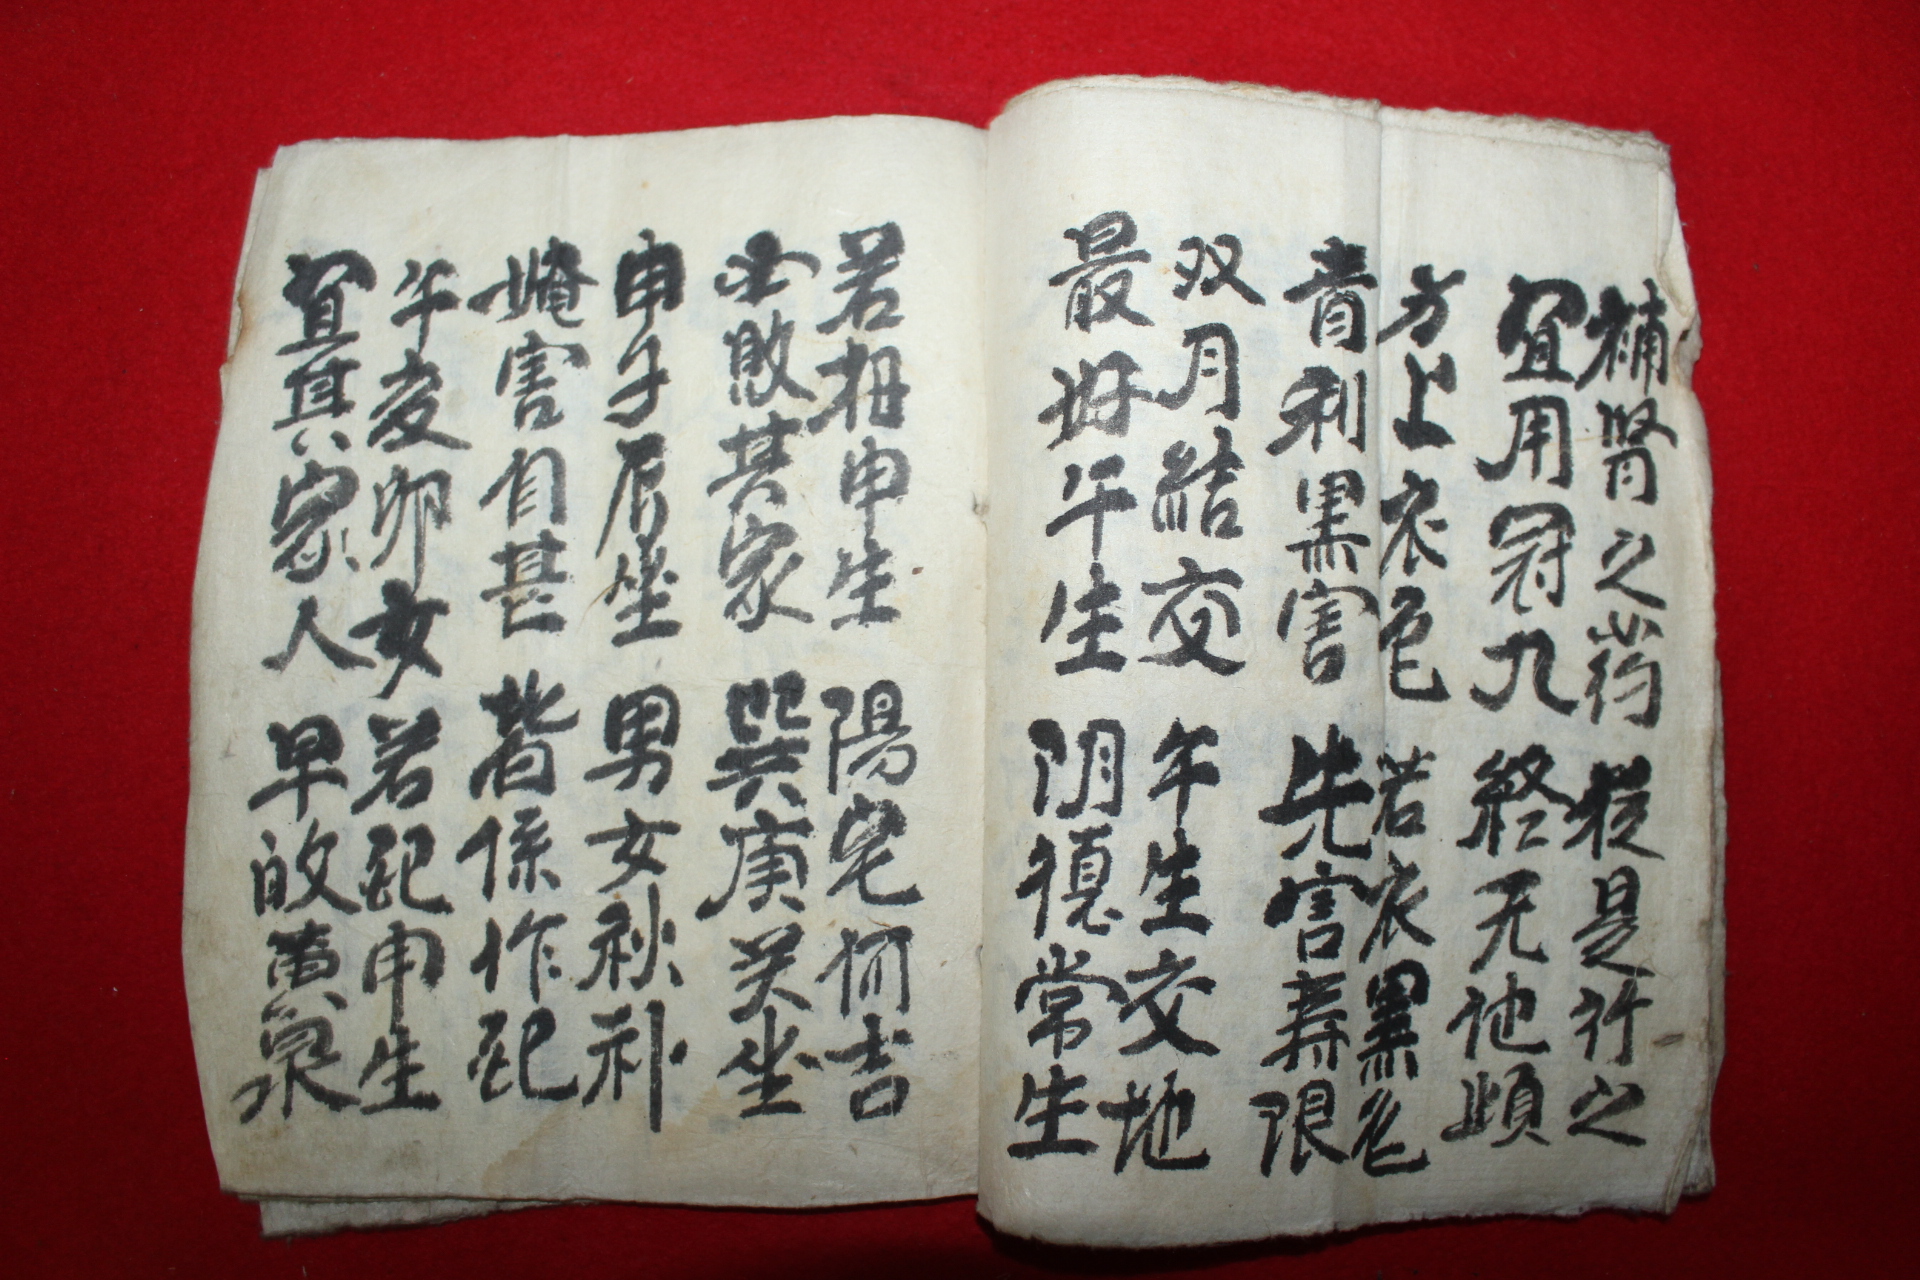 補腎之药 從是行之
宜用冠九 終无他頉
方上衣色 若衣黑色
青利黑害 先害壽限
双月結交 午生交地
最好午生 阴德常生
若相申生 陽宅何吉
必敗其家 巽庚癸坐
申子辰坐 男女秋
害自甚 皆係作配
午亥卯女 若配申生
宜其家人 早的黄泉